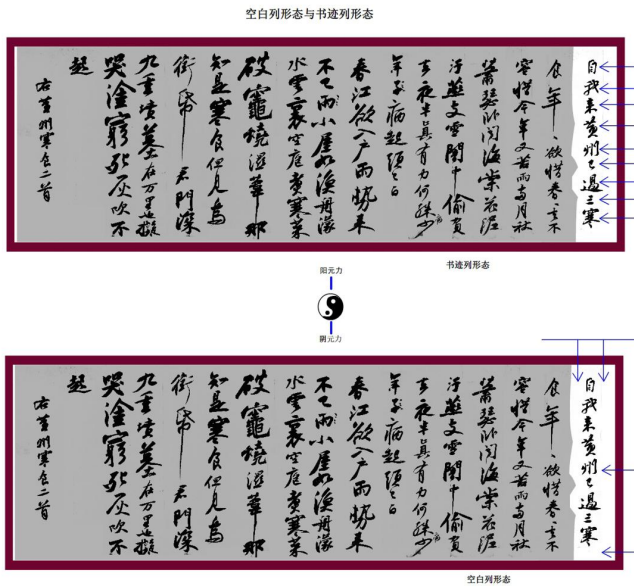 空白列形态与书迹列形态
自我来黄州已過三寒
食年〻欲惜春〻去不
容惜今年又苦雨兩月秋
蕭瑟卧聞海棠花泥
汙燕支雪闇中偷負
去夜半真有力何殊少
年子病起須已白
春江欲入户雨勢来
不已雨小屋如漁舟濛
水雲裏空庖煮寒菜
破竈燒濕葦那
知是寒食但見烏
銜帋君門深
九重墳墓在万里也擬
哭塗窮死灰吹不
起
右黄州寒食二首
书迹列形态
阳元力
阴元力
自我来黄州已過三寒
食年〻欲惜春〻去不
容惜今年又苦雨兩月秋
蕭瑟卧聞海棠花泥
汙燕支雪闇中偷負
去夜半真有力何殊少
年子病起須已白
春江欲入户雨勢来
不已雨小屋如漁舟濛
水雲裏空庖煮寒菜
破竈燒濕葦那
知是寒食但見烏
銜帋君門深
九重墳墓在万里也擬
哭塗窮死灰吹不
起
右黄州寒食二首
空白列形态